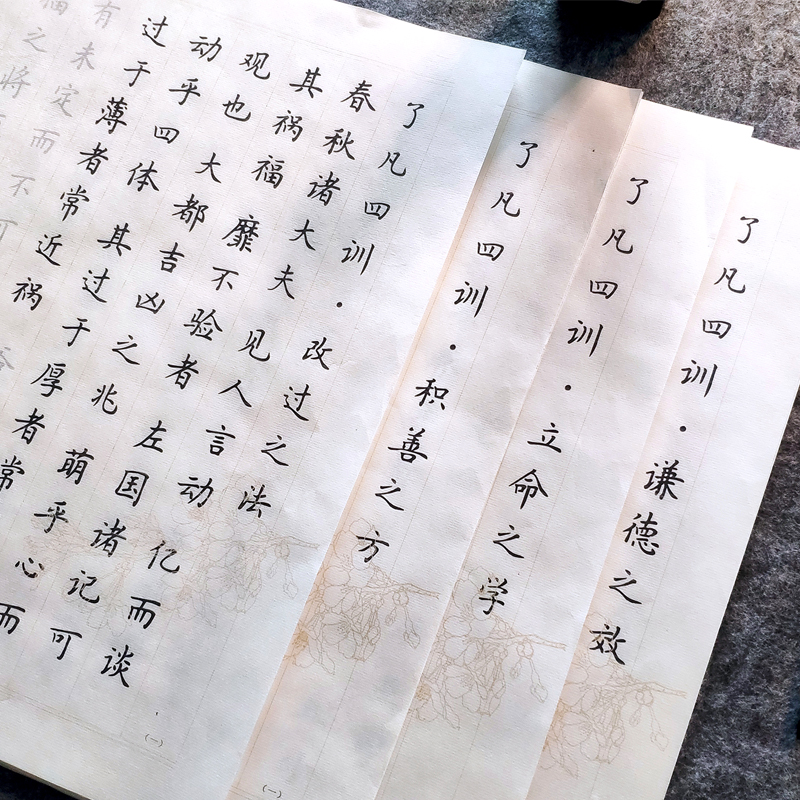 了凡四训·改过之法
春秋诸大夫见人言动亿而谈
其祸福靡不验者左国诸记可
观也大都吉凶之兆萌乎心而
动乎四体其过于厚者常
过于薄者常近祸
有未定而不可
福之将
(一)
了凡四训·积善之方
(一)
了凡四训·立命之学
了凡四训·谦德之效